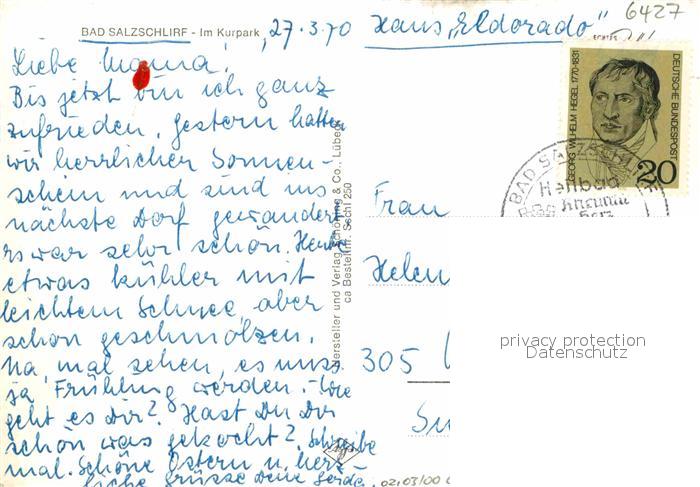 BAD SALZSCHLIRF - Im Kurpark, 27.3.70 Haus „Eldorado"
6427
Liebe Mama!
Bis jetzt bin ich ganz
zufrieden, gestern hatten
wir herrlichen Sonnen-
schein und sind ins
nächste Dorf gewandert
es war sehr schön. Heute
etwas kühler mit
leichtem Schnee, aber
schon geschmolzen.
Na, mal sehen, es muss
ja Frühling werden. - Wie
geht es Dir? Hast Du Dir
schon was gekocht? Schreibe
mal. Schöne Ostern u. herz-
liche Grüsse Deine Gerda.
Hersteller und Verlag Schöning & Co., Lübeck
Bestell.nr. Sschl 250
GEORG WILHELM HEGEL 1770-1831
DEUTSCHE BUNDESPOST
20
BAD SALZSCHLIRF
Heilbad
Rheuma
Herz
Frau
Helen
305
privacy protection
Datenschutz
02/03/00